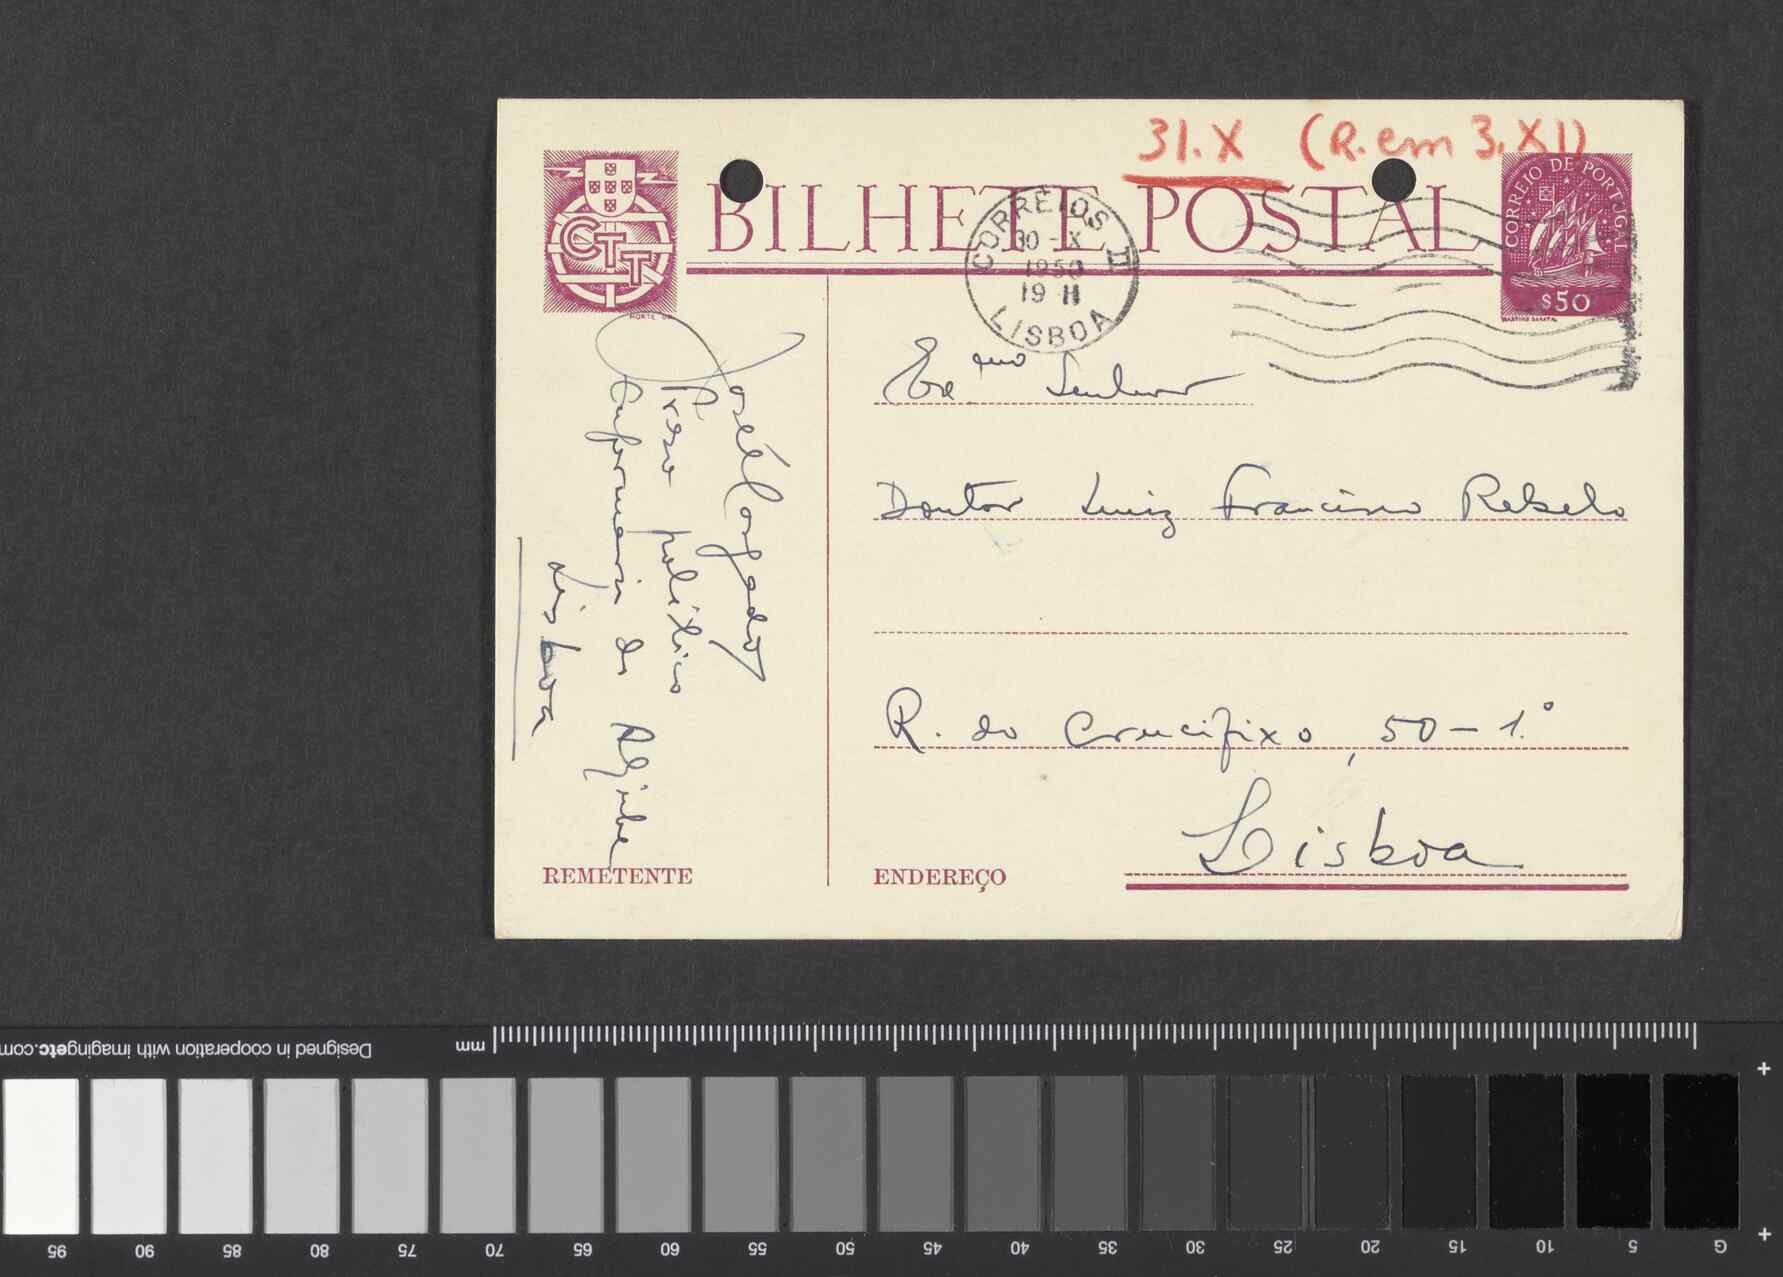 31.X (R. em 3.XI)
BILHETE POSTAL
CTT
CORREIO DE PORTUGAL
$50
CORREIOS II
30 X
1950
19 H
LISBOA
José Morgado
Preso politico
Enfermaria do Aljube
Lisboa
REMETENTE
Exmo Senhor
Doutor Luiz Francisco Rebelo
R. do Crucifixo, 50-1.º
Lisboa
ENDEREÇO
mm
Designed in cooperation with imagingetc.com
95 90 85 80 75 70 65 60 55 50 45 40 35 30 25 20 15 10 5 G